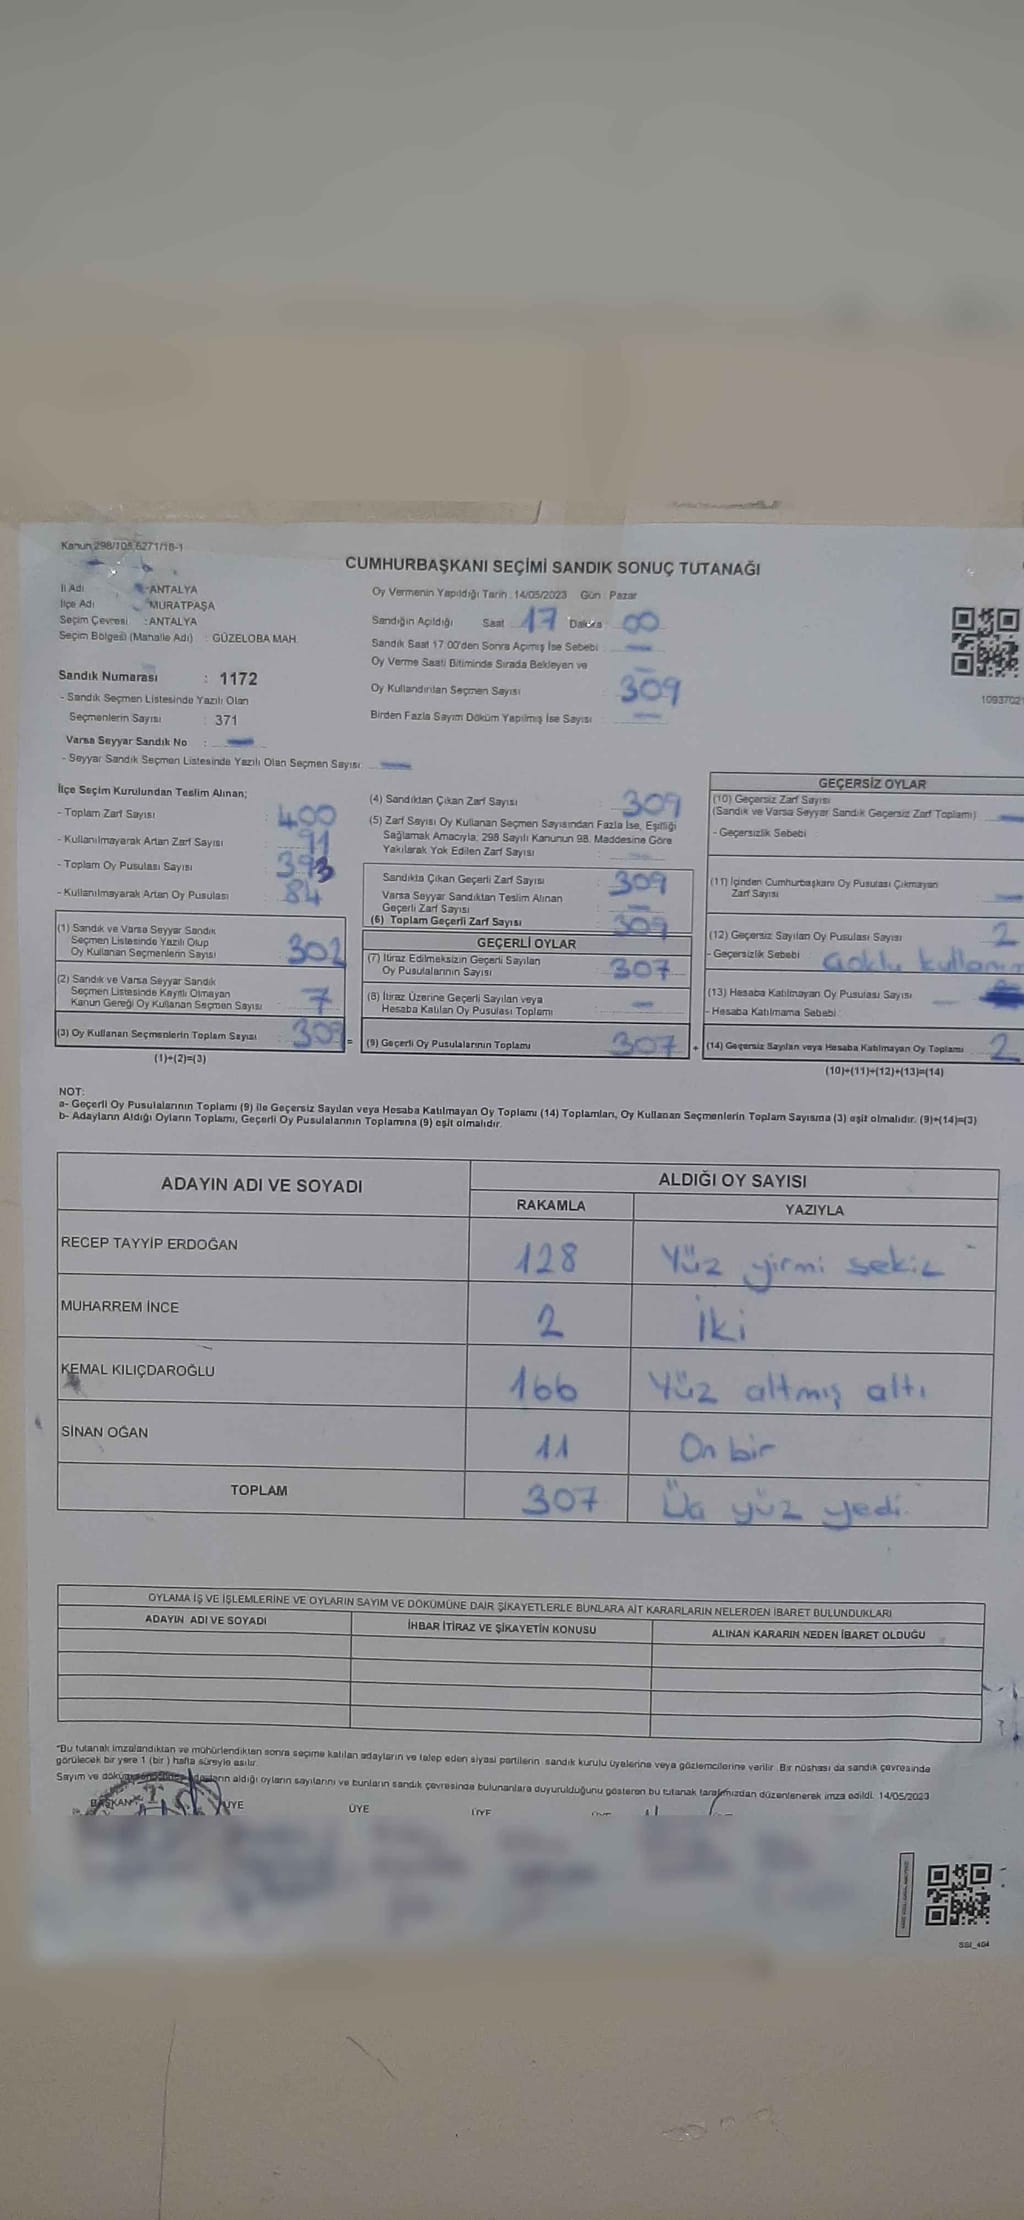 Kanun 298/105,6271/16-1
CUMHURBAŞKANI SEÇİMİ SANDIK SONUÇ TUTANAĞI
İl Adı : ANTALYA
İlçe Adı : MURATPAŞA
Seçim Çevresi : ANTALYA
Seçim Bölgesi (Mahalle Adı) : GÜZELOBA MAH.
Oy Vermenin Yapıldığı Tarih : 14/05/2023 Gün : Pazar
Sandığın Açıldığı Saat 17 Dakika 00
Sandık Saat 17:00'den Sonra Açımış İse Sebebi : —
Oy Verme Saati Bitiminde Sırada Bekleyen ve
Oy Kullandırılan Seçmen Sayısı : 309
Birden Fazla Sayım Döküm Yapılmış İse Sayısı : —
1093702
Sandık Numarası : 1172
- Sandık Seçmen Listesinde Yazılı Olan
Seçmenlerin Sayısı : 371
Varsa Seyyar Sandık No : —
- Seyyar Sandık Seçmen Listesinde Yazılı Olan Seçmen Sayısı: —
İlçe Seçim Kurulundan Teslim Alınan;
- Toplam Zarf Sayısı : 400
- Kullanılmayarak Artan Zarf Sayısı : 91
- Toplam Oy Pusulası Sayısı : 393
- Kullanılmayarak Artan Oy Pusulası : 84
(1) Sandık ve Varsa Seyyar Sandık
Seçmen Listesinde Yazılı Olup
Oy Kullanan Seçmenlerin Sayısı 302
(2) Sandık ve Varsa Seyyar Sandık
Seçmen Listesinde Kayıtlı Olmayan
Kanun Gereği Oy Kullanan Seçmen Sayısı 7
(3) Oy Kullanan Seçmenlerin Toplam Sayısı 309 =
(1)+(2)=(3)
(4) Sandıktan Çıkan Zarf Sayısı : 309
(5) Zarf Sayısı Oy Kullanan Seçmen Sayısından Fazla İse, Eşitliği
Sağlamak Amacıyla, 298 Sayılı Kanunun 98. Maddesine Göre
Yakılarak Yok Edilen Zarf Sayısı : —
Sandıkta Çıkan Geçerli Zarf Sayısı : 309
Varsa Seyyar Sandıktan Teslim Alınan
Geçerli Zarf Sayısı : —
(6) Toplam Geçerli Zarf Sayısı : 309
GEÇERLİ OYLAR
(7) İtiraz Edilmeksizin Geçerli Sayılan
Oy Pusulalarının Sayısı : 307
(8) İtiraz Üzerine Geçerli Sayılan veya
Hesaba Katılan Oy Pusulası Toplamı : —
(9) Geçerli Oy Pusulalarının Toplamı 307 +
GEÇERSİZ OYLAR
(10) Geçersiz Zarf Sayısı
(Sandık ve Varsa Seyyar Sandık Geçersiz Zarf Toplamı) : —
- Geçersizlik Sebebi
(11) İçinden Cumhurbaşkanı Oy Pusulası Çıkmayan
Zarf Sayısı —
(12) Geçersiz Sayılan Oy Pusulası Sayısı 2
- Geçersizlik Sebebi : Çoklu
(13) Hesaba Katılmayan Oy Pusulası Sayısı : —
- Hesaba Katılmama Sebebi :
(14) Geçersiz Sayılan veya Hesaba Katılmayan Oy Toplamı 2
(10)+(11)+(12)+(13)=(14)
NOT:
a- Geçerli Oy Pusulalarının Toplamı (9) ile Geçersiz Sayılan veya Hesaba Katılmayan Oy Toplamı (14) Toplamları, Oy Kullanan Seçmenlerin Toplam Sayısına (3) eşit olmalıdır. (9)+(14)=(3)
b- Adayların Aldığı Oyların Toplamı, Geçerli Oy Pusulalarının Toplamına (9) eşit olmalıdır.
ADAYIN ADI VE SOYADI ALDIĞI OY SAYISI
RAKAMLA YAZIYLA
RECEP TAYYİP ERDOĞAN 128 Yüz yirmi sekiz
MUHARREM İNCE 2 İki
KEMAL KILIÇDAROĞLU 166 Yüz altmış altı
SİNAN OĞAN 11 On bir
TOPLAM 307 Üç yüz yedi.
OYLAMA İŞ VE İŞLEMLERİNE VE OYLARIN SAYIM VE DÖKÜMÜNE DAİR ŞİKAYETLERLE BUNLARA AİT KARARLARIN NELERDEN İBARET BULUNDUKLARI
ADAYIN ADI VE SOYADI İHBAR İTİRAZ VE ŞİKAYETİN KONUSU ALINAN KARARIN NEDEN İBARET OLDUĞU
*Bu tutanak imzalandıktan ve mühürlendikten sonra seçime katılan adayların ve talep eden siyasi partilerin sandık kurulu üyelerine veya gözlemcilerine verilir. Bir nüshası da sandık çevresinde
görülecek bir yere 1 (bir) hafta süreyle asılır.
Sayım ve aldığı oyların sayılarını ve bunların sandık çevresinde bulunanlara duyurulduğunu gösteren bu tutanak tarafımızdan düzenlenerek imza edildi. 14/05/2023
BAŞKAN ÜYE ÜYE ÜYE
SSI_404